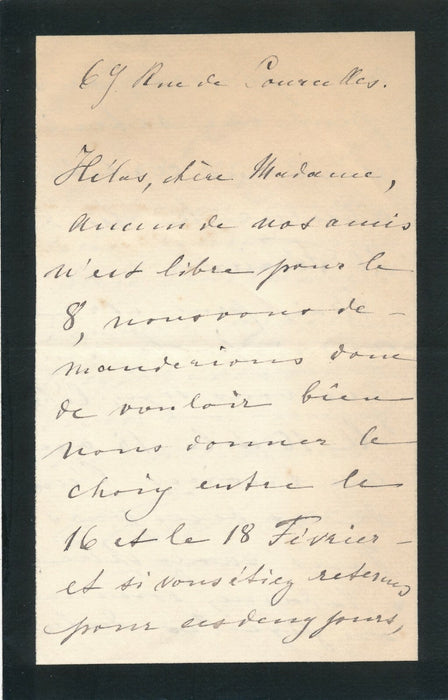 69 Rue de Courcelles.
Hélas, chère Madame,
aucun de nos amis
n'est libre pour le
8, nous vous de-
manderions donc
de vouloir bien
nous donner le
choix entre le
16 et le 18 Février -
et si vous étiez retenus
pour ces deux jours,